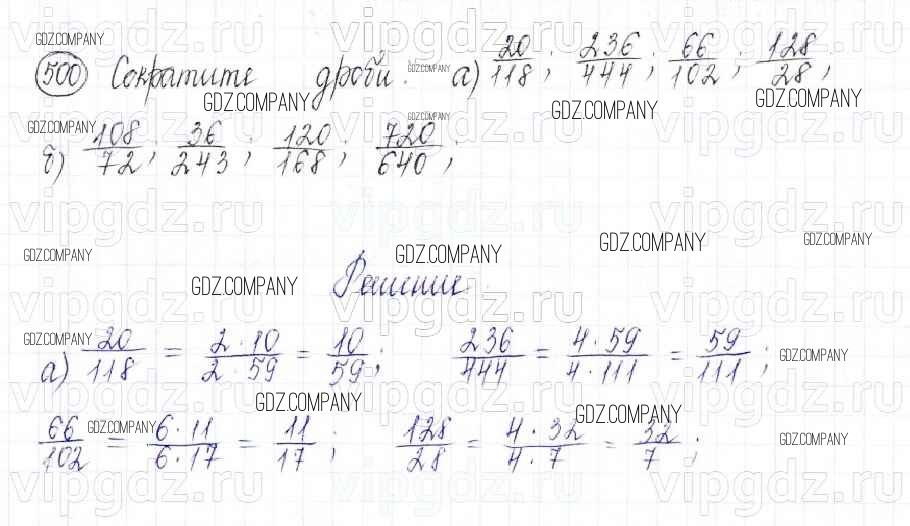 500 Сократите дроби: а) 20/118; 236/444; 66/102; 128/28;
б) 108/72; 36/243; 120/168; 720/640;
Решение.
а) 20/118 = 2·10/2·59 = 10/59; 236/444 = 4·59/4·111 = 59/111;
66/102 = 6·11/6·17 = 11/17; 128/28 = 4·32/4·7 = 32/7;
GDZ.COMPANY
vipgdz.ru